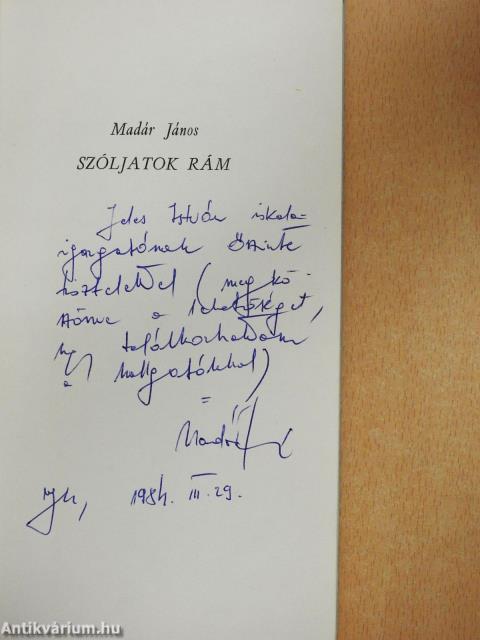 Madár János
SZÓLJATOK RÁM
Jeles István iskola-
igazgatónak őszinte
tisztelettel (megkö-
szönve a lehetőséget,
hogy találkozhattam
a hallgatókkal)
Madár J
1984. III. 29.
Antikvárium.hu